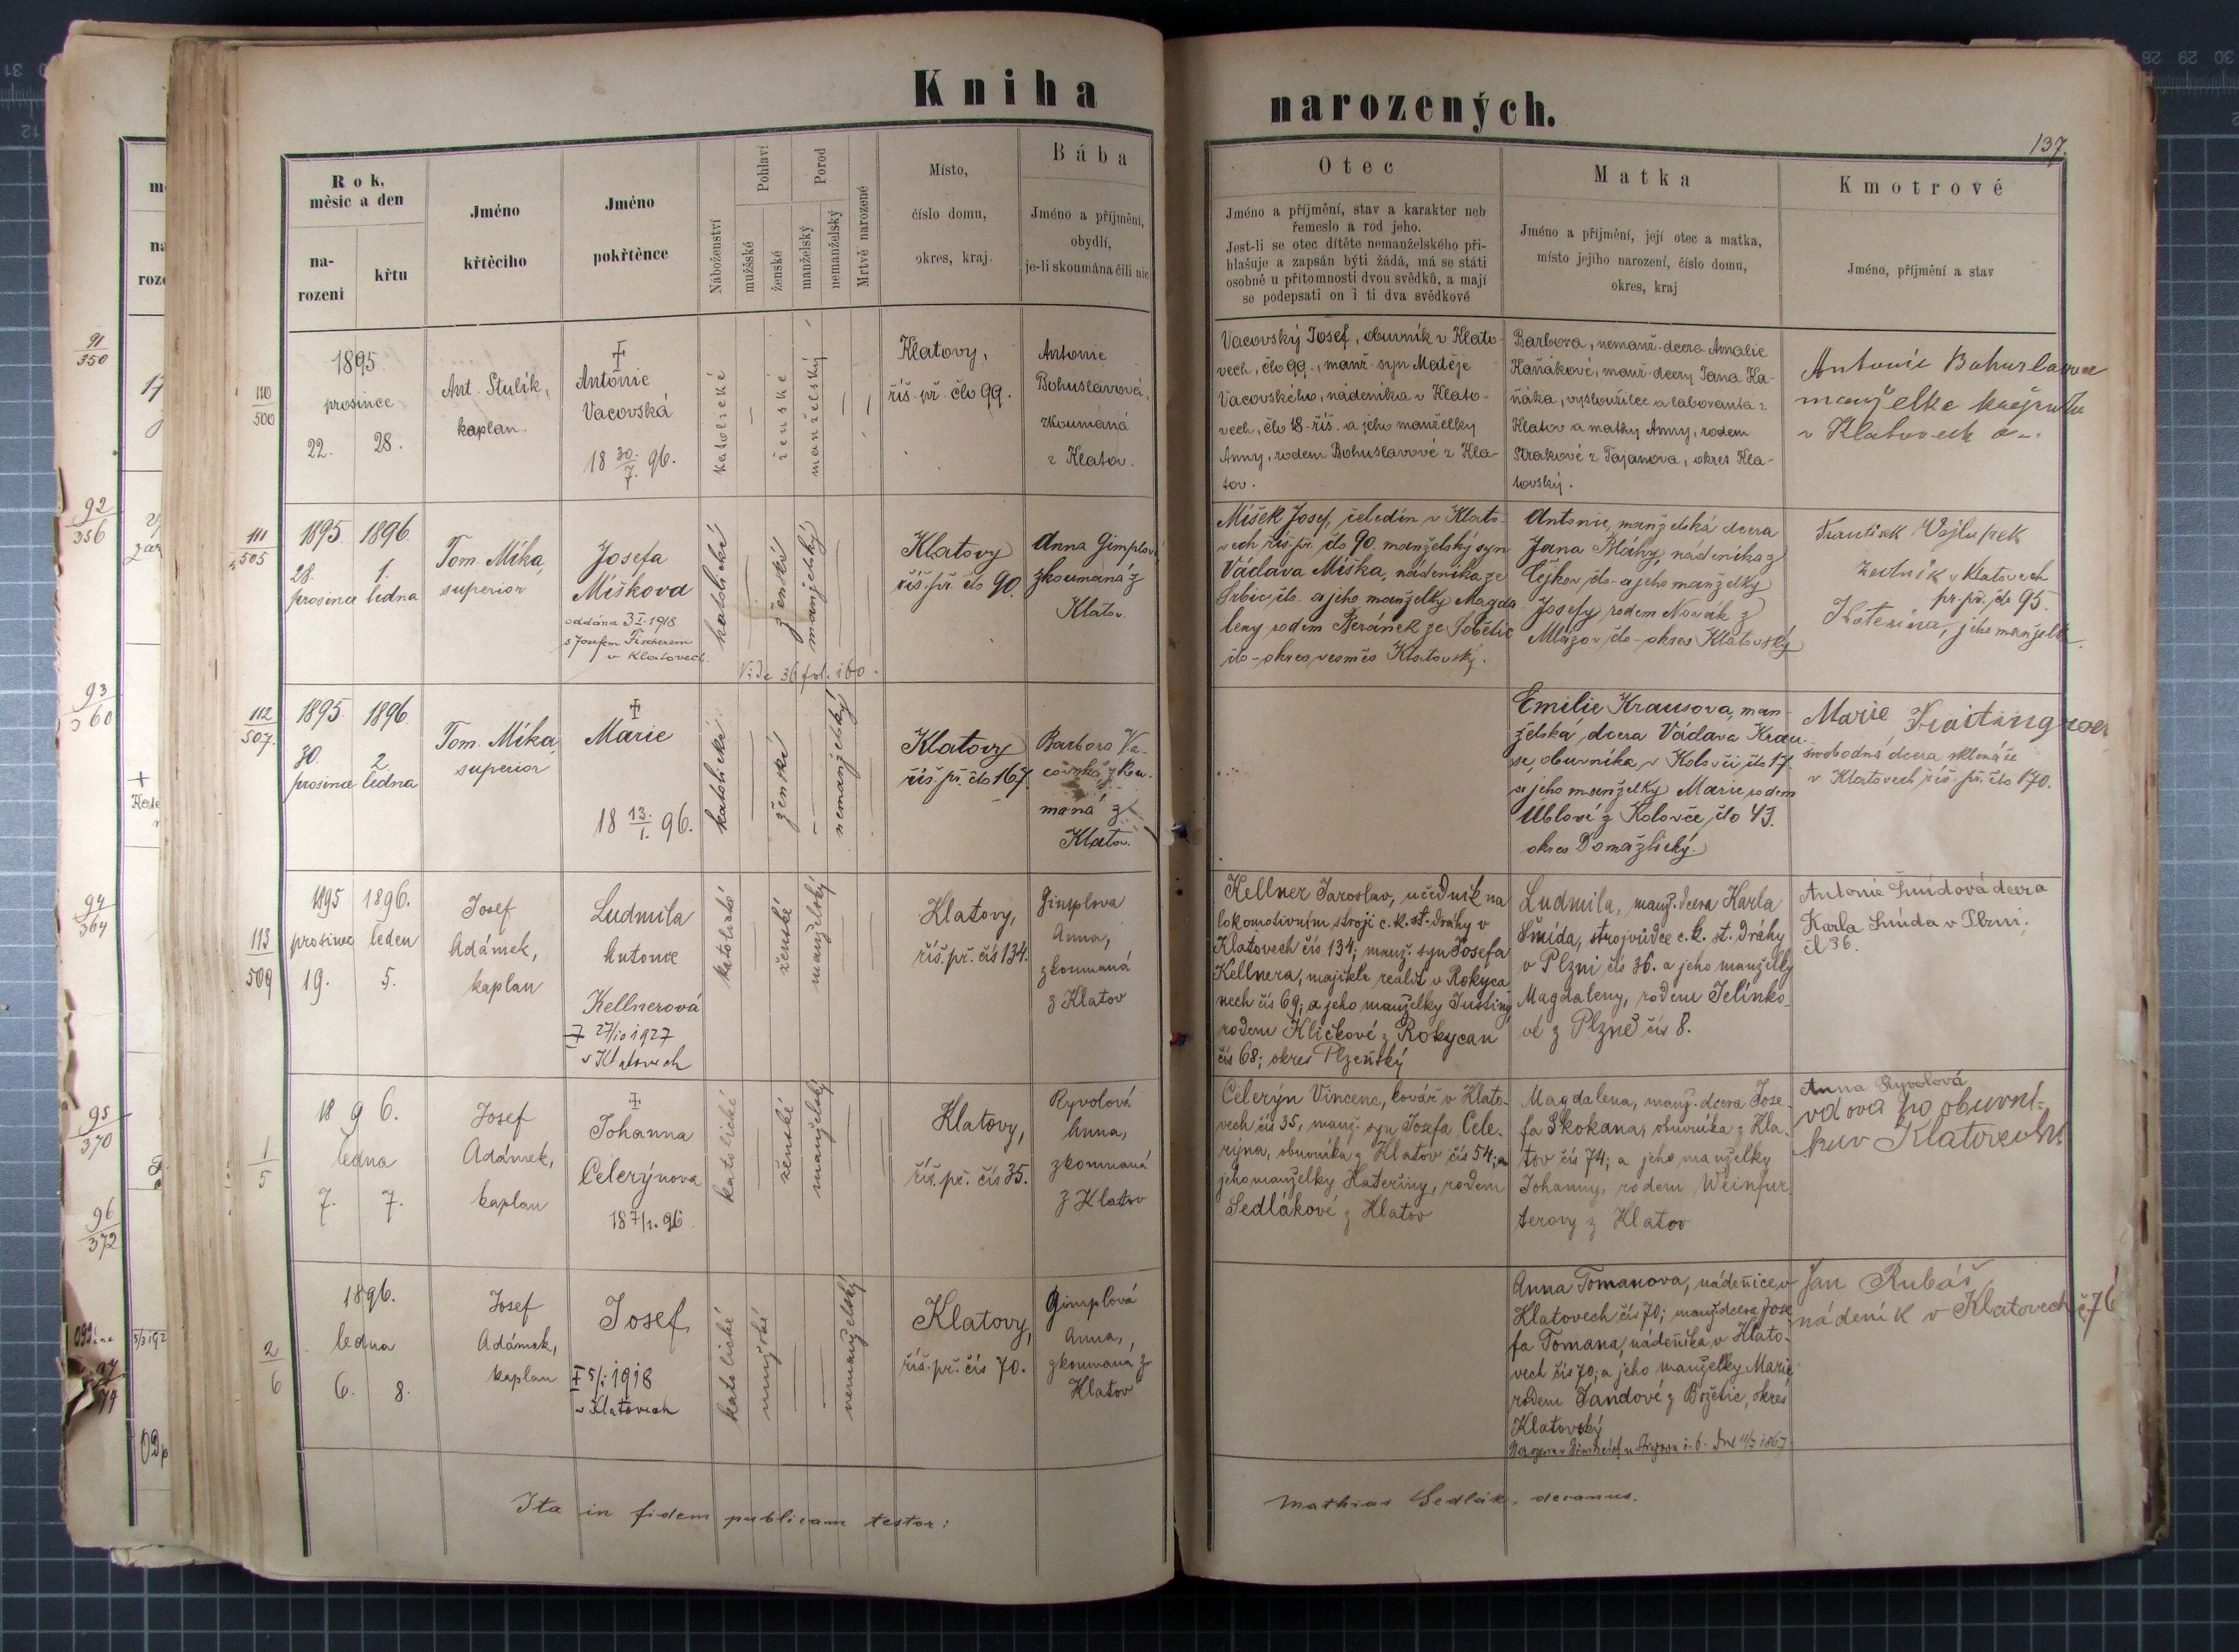 Kniha narozených.
137.
Rok, měsíc a den
na-
rození
křtu
Jméno
křtěcího
Jméno
pokřtěnce
Náboženství
Pohlaví
mužšské
ženské
Porod
manželský
nemanželský
Mrtvě narozené
Místo,
číslo domu,
okres, kraj.
Bába
Jméno a příjmění,
obydlí,
je-li skoumána čili nic
Otec
Jméno a příjmění, stav a karakter neb
řemeslo a rod jeho.
Jest-li se otec dítěte nemanželského při-
hlašuje a zapsán býti žádá, má se státi
osobně u přítomnosti dvou svědků, a mají
se podepsati on i ti dva svědkové
Matka
Jméno a příjmění, její otec a matka,
místo jejího narození, číslo domu,
okres, kraj
Kmotrové
Jméno, příjmění a stav
91
350
92
356
93
360
94
364
95
370
96
372
110
500
1895
prosince
22. 28.
Ant. Stulík,
kaplan.
Antonie
Vacovská
18 30/7. 96.
katolické
ženské
manželský
Klatovy,
říš. př. člo 99.
Antonie
Bohuslavová,
zkoumaná
z Klatov.
Vacovský Josef, obuvník v Klato-
vech, člo 99., manž. syn Matěje
Vacovského, nádeníka v Klato-
vech, člo 18. říš. a jeho manželky
Anny, rodem Bohuslavové z Kla-
tov.
Barbora, nemanž. dcera Amalie
Haňákové, manž. dcery Jana Ha-
ňáka, vysloužilce a labovanta z
Klatov a matky Anny, rodem
Strakové z Tajanova, okres Kla-
tovský.
Antonie Bohuslavova
manželka
v Klatovech
111
505
1895. 1896.
28. 1.
prosince ledna
Tom. Míka,
superior
Josefa
Míškova
oddána 3/I. 1918
s Josefem Fischerem
v Klatovech.
Vide 36 fol. 160.
katolické
ženské
manželský
Klatovy
říš. př. člo 90.
Anna Gimplova
zkoumaná z
Klatov.
Míšek Josef, čeledín v Klato-
vech říš. př. člo 90. manželský syn
Václava Míška, nádeníka ze
Srbic člo- a jeho manželky Magda-
leny rodem Beránek ze Sobětic
člo-okres vesměs Klatovský.
Antonie, manželská dcera
Jana Bláhy, nádeníka z
člo- a jeho manželky
Josefy rodem Novák z
Mlázov člo-okres Klatovský
František Vojlupek
zedník v Klatovech
pr. př. člo 95.
Kateřina, jeho manželka.
112
507.
1895. 1896.
30. 2.
prosince ledna
Tom. Míka,
superior
Marie
18 13./1. 96.
katolické
ženské
nemanželský
Klatovy
říš. př. člo 167.
Barbora Va-
covská, zkou-
maná z
Klatov.
Emilie Krausova, man-
želská dcera Václava Krau-
se, obuvníka v Kolovči, člo 17
a jeho manželky Marie rodem
Üblové z Kolovče, člo 43.
okres Domažlický.
Marie
svobodná dcera sklenáře
v Klatovech říš. př. člo 170.
113
509
1895 1896.
prosince leden
19. 5.
Josef
Adámek,
kaplan
Ludmila
Antonie
Kellnerová
27/10 1927
v Klatovech
katolické
ženské
manželský
Klatovy,
říš. př. čís 134.
Gimplova
Anna,
zkoumaná
z Klatov
Kellner Jaroslav, učedník na
lokomotivním stroji c. k. st. dráhy v
Klatovech čís 134; manž. syn Josefa
Kellnera, majitele realit v Rokyca-
nech čís 69; a jeho manželky Justiny,
rodem Kličkové z Rokycan
čís 68; okres Plzeňský
Ludmila, manž. dcera Karla
Šmída, strojvůdce c. k. st. dráhy
v Plzni čís 36. a jeho manželky
Magdaleny, rodem Jelínko-
vé z Plzně čís 8.
Antonie Šmídová dcera
Karla Šmída v Plzni,
čl 36.
1
5
1896.
ledna
7. 7.
Josef
Adámek,
kaplan
Johanna
Celerýnova
18 7/1. 96.
katolické
ženské
manželský
Klatovy,
říš. př. čís 35.
Ryvolová
Anna,
zkoumaná
z Klatov
Celerýn Vincenc, kovář v Klato-
vech čís 35, manž. syn Josefa Cele-
rýna, obuvníka z Klatov čís 54; a
jeho manželky Kateřiny, rodem
Sedlákové z Klatov
Magdalena, manž. dcera Jose-
fa Skokana, obuvníka z Kla-
tov čís 74; a jeho manželky
Johanny, rodem Weinfur-
terovy z Klatov
Anna Ryvolová
vdova po obuvní-
ku v Klatovech.
2
6
1896.
ledna
6. 8.
Josef
Adámek,
kaplan
Josef
5/I 1918
v Klatovech
katolické
mužské
nemanželský
Klatovy,
říš. př. čís 70.
Gimplová
Anna,
zkoumaná z
Klatov
Anna Tomanova, nádenice v
Klatovech čís 70; manž. dcera Jose-
fa Tomana, nádeníka v Klato-
vech čís 70; a jeho manželky Marie
rodem Jandové z Božetic, okres
Klatovský
Jan Rubáš
nádeník v Klatovech č 76
Ita in fidem publicam testor:
Mathias Sedlák, decanus.